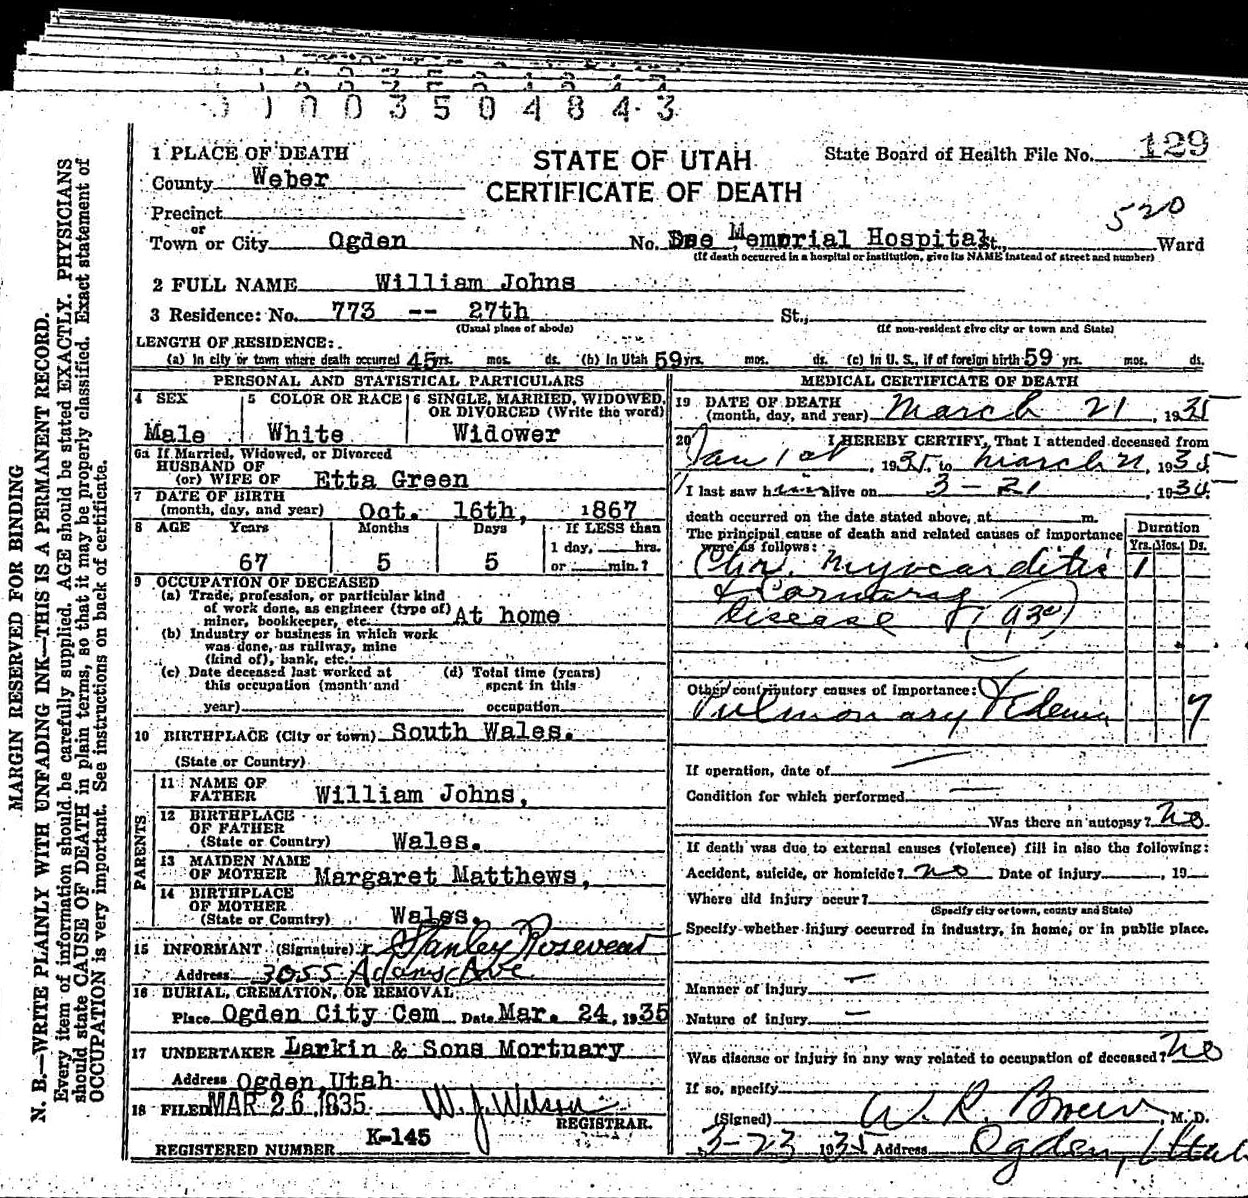 01003504843
MARGIN RESERVED FOR BINDING
N. B.—WRITE PLAINLY WITH UNFADING INK—THIS IS A PERMANENT RECORD.
Every item of information should be carefully supplied. AGE should be stated EXACTLY. PHYSICIANS
should state CAUSE OF DEATH in plain terms, so that it may be properly classified. Exact statement of
OCCUPATION is very important. See instructions on back of certificate.
STATE OF UTAH
CERTIFICATE OF DEATH
State Board of Health File No. 129
1 PLACE OF DEATH
County Weber
Precinct
or
Town or City Ogden No. Dee Memorial Hospital St., 520 Ward
(If death occurred in a hospital or institution, give its NAME instead of street and number)
2 FULL NAME William Johns
3 Residence: No. 773 -- 27th St.,
(Usual place of abode) (If non-resident give city or town and State)
LENGTH OF RESIDENCE:
(a) In city or town where death occurred 45 yrs. mos. ds. (b) In Utah 59 yrs. mos. ds. (c) In U. S., if of foreign birth 59 yrs. mos. ds.
PERSONAL AND STATISTICAL PARTICULARS
4 SEX Male
5 COLOR OR RACE White
6 SINGLE, MARRIED, WIDOWED, OR DIVORCED (Write the word) Widower
6a If Married, Widowed, or Divorced
HUSBAND OF
(or) WIFE OF Etta Green
7 DATE OF BIRTH
(month, day, and year) Oct. 16th, 1867
8 AGE Years Months Days If LESS than
1 day, hrs.
67 5 5 or min.?
9 OCCUPATION OF DECEASED
(a) Trade, profession, or particular kind
of work done, as engineer (type of)
miner, bookkeeper, etc. At home
(b) Industry or business in which work
was done, as railway, mine
(kind of), bank, etc.
(c) Date deceased last worked at
this occupation (month and
year)
(d) Total time (years)
spent in this
occupation
10 BIRTHPLACE (City or town) South Wales.
(State or Country)
PARENTS
11 NAME OF
FATHER William Johns,
12 BIRTHPLACE
OF FATHER
(State or Country) Wales.
13 MAIDEN NAME
OF MOTHER Margaret Matthews,
14 BIRTHPLACE
OF MOTHER
(State or Country) Wales.
15 INFORMANT (Signature) Stanley Rosevear
Address 3055 Adams Ave
16 BURIAL, CREMATION, OR REMOVAL
Place Ogden City Cem Date Mar. 24, 1935
17 UNDERTAKER Larkin & Sons Mortuary
Address Ogden, Utah
18 FILED MAR 26 1935 W. J. Wilson
REGISTRAR.
REGISTERED NUMBER K-145
MEDICAL CERTIFICATE OF DEATH
19 DATE OF DEATH
(month, day, and year) March 21, 1935
20 I HEREBY CERTIFY, That I attended deceased from
Jan 1st, 1935, to March 21, 1935
I last saw him alive on 3-21, 1935
death occurred on the date stated above, at m.
The principal cause of death and related causes of importance
were as follows:
Duration
Yrs. Mos. Ds.
Chr. Myocarditis 1
& Coronary
Disease (93c)
Other contributory causes of importance:
Pulmonary Edema 7
If operation, date of —
Condition for which performed —
Was there an autopsy? No
If death was due to external causes (violence) fill in also the following:
Accident, suicide, or homicide? no Date of injury , 19
Where did injury occur?
(Specify city or town, county and State)
Specify whether injury occurred in industry, in home, or in public place.
Manner of injury —
Nature of injury —
Was disease or injury in any way related to occupation of deceased? No
If so, specify
(Signed) W. R. Brown, M. D.
3-23 1935 Address Ogden, Utah